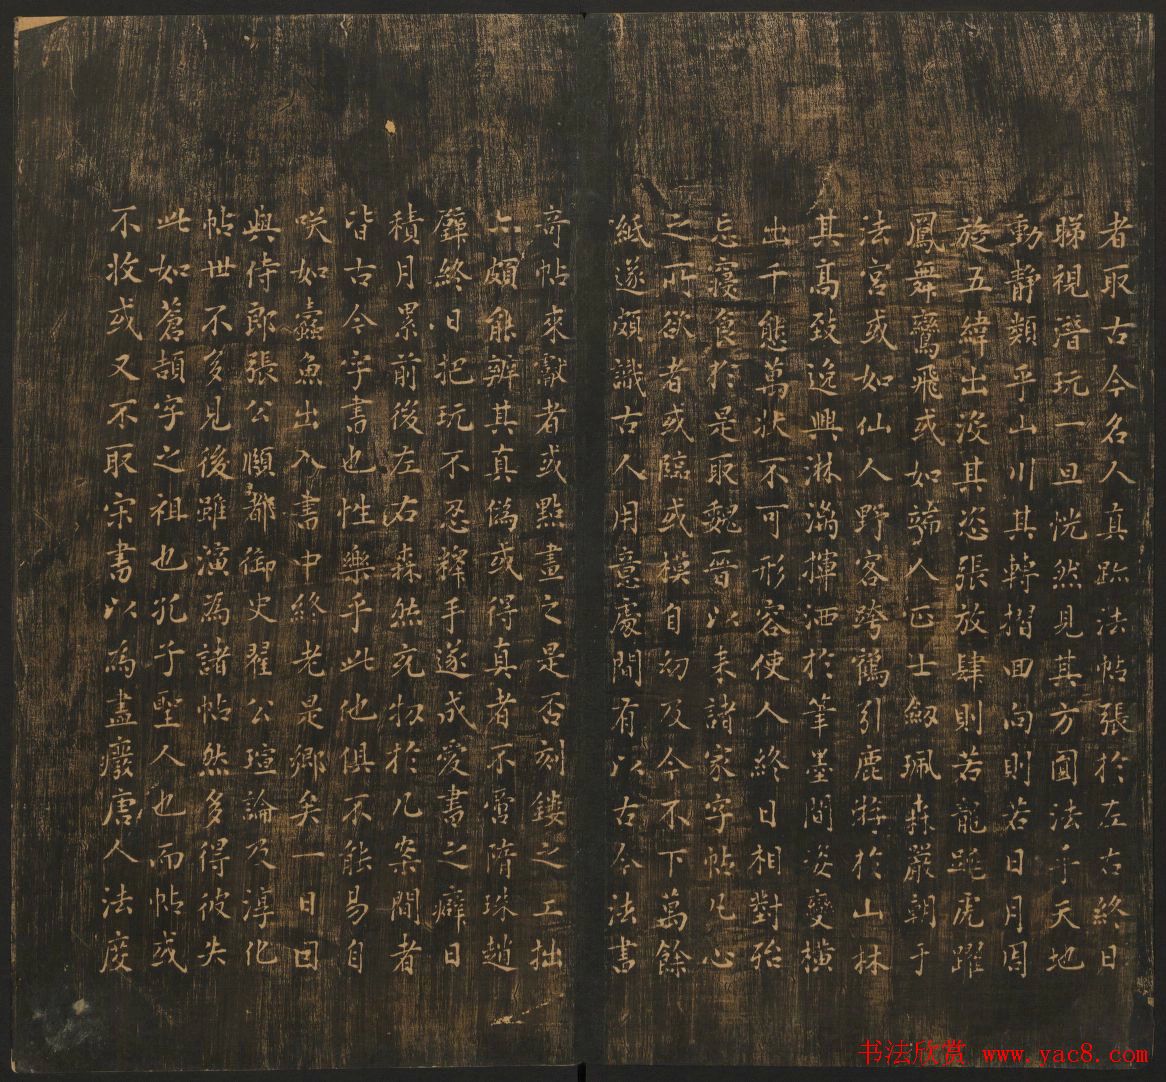 者取古今名人真跡法帖張於左右終日
睇視潛玩一旦恍然見其方圓法乎天地
動靜類乎山川其轉摺回向則若日月周
旋五緯出沒其恣張放肆則若龍跳虎躍
鳳舞鸞飛或如端人正士劔珮森嚴朝于
法宮或如仙人野客跨鶴引鹿游於山林
其高致逸興淋漓揮洒於筆墨間姿變橫
出千態萬狀不可形容使人終日相對殆
忘寢食於是取魏晉以来諸家字帖凡心
之所欲者或臨或模自幼及今不下萬餘
紙遂頗識古人用意處間有以古今法書
奇帖來獻者或點畫之是否刻鏤之工拙
亦頗能辨其真偽或得真者不啻隋珠趙
璧終日把玩不忍釋手遂成愛書之癖日
積月累前後左右森然充牣於几案間者
皆古今字書也性樂乎此他俱不能易自
咲如蠹魚出入書中終老是鄉矣一日因
與侍郎張公頤都御史翟公瑄論及淳化
帖世不多見後雖演為諸帖然多得彼失
此如蒼頡字之祖也孔子聖人也而帖或
不收或又不取宋書以為盡癈唐人法度
书法欣赏 www.yac8.com